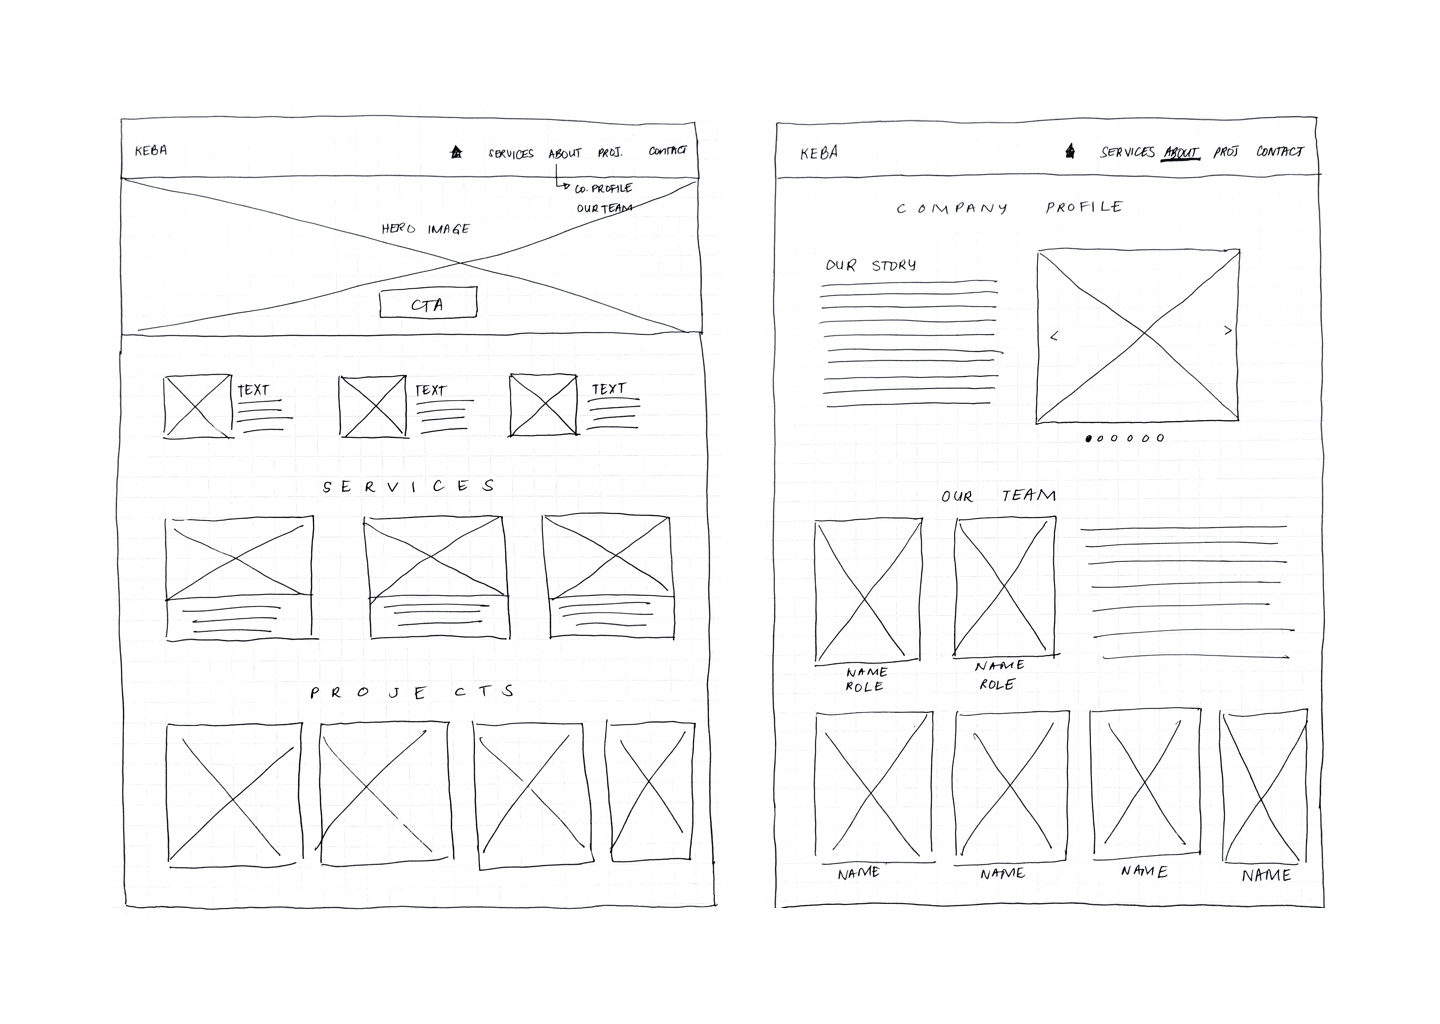 KEBA SERVICES ABOUT PROJ. CONTACT
CO. PROFILE
OUR TEAM
HERO IMAGE
CTA
TEXT TEXT TEXT
SERVICES
PROJECTS
KEBA SERVICES ABOUT PROJ CONTACT
COMPANY PROFILE
OUR STORY
< >
OUR TEAM
NAME NAME
ROLE ROLE
NAME NAME NAME NAME